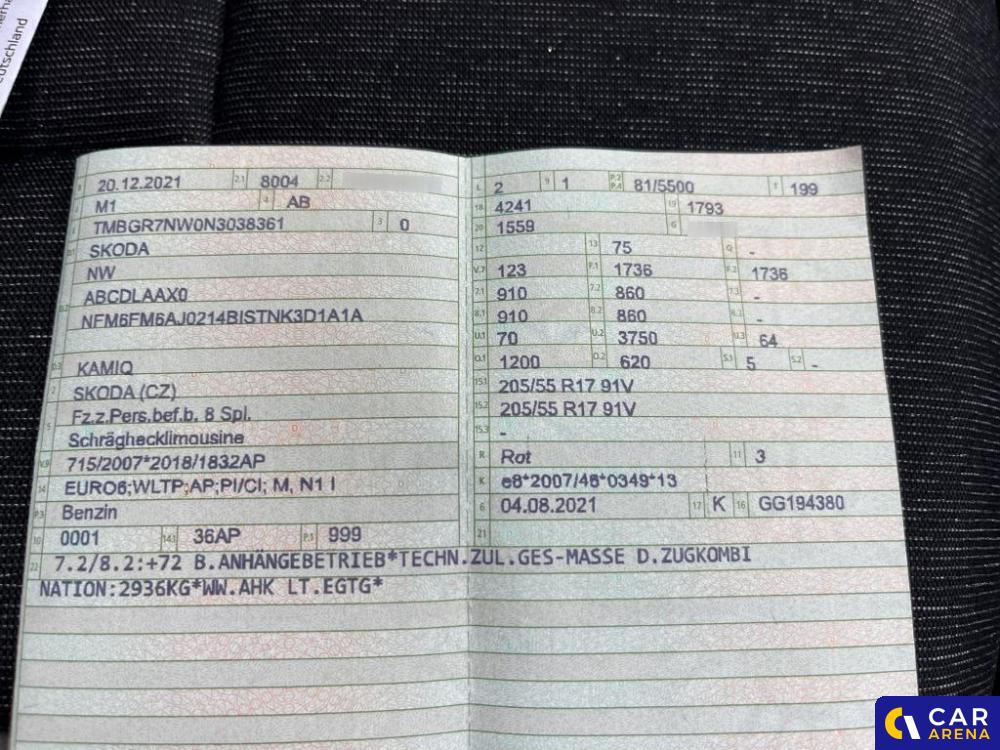 eutschland
20.12.2021 2.1 8004 2.2
M1 4 AB
TMBGR7NW0N3038361 3 0
SKODA
NW
ABCDLAAX0
NFM6FM6AJ0214BISTNK3D1A1A
D.3 KAMIQ
2 SKODA (CZ)
5 Fz.z.Pers.bef.b. 8 Spl.
Schräghecklimousine
V.9 715/2007*2018/1832AP
14 EURO6;WLTP;AP;PI/CI; M, N1 I
P.3 Benzin
10 0001 14.1 36AP P.1 999
L 2 9 1 P.2 P.4 81/5500 T 199
18 4241 19 1793
20 1559 G
12 13 75 Q -
V.7 123 F.1 1736 F.2 1736
7.1 910 7.2 860 7.3 -
8.1 910 8.2 860 8.3 -
U.1 70 U.2 3750 U.3 64
O.1 1200 O.2 620 S.1 5 S.2 -
15.1 205/55 R17 91V
15.2 205/55 R17 91V
15.3 -
R Rot 11 3
K e8*2007/46*0349*13
6 04.08.2021 17 K 16 GG194380
21
22 7.2/8.2:+72 B.ANHÄNGEBETRIEB*TECHN.ZUL.GES-MASSE D.ZUGKOMBI
NATION:2936KG*WW.AHK LT.EGTG*
CAR
ARENA